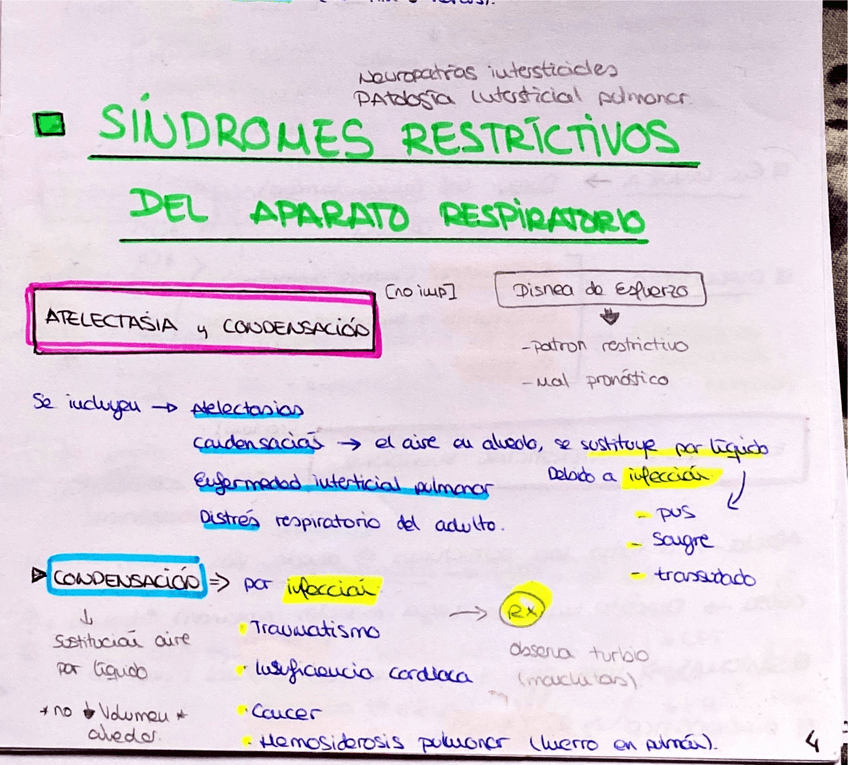 Neuropatías intersticiales
PAtología intersticial pulmonar.
SÍNDROMES RESTRÍCTIVOS
DEL APARATO RESPIRATORIO
ATELECTASIA y CONDENSACIÓN
[no imp]
Disnea de Esfuerzo
-patron restrictivo
-Mal pronóstico
Se incluyen → Atelectasias
Condensaciás → el aire en alveolo, se sustituye por líquido
Debido a infección
Enfermedad intersticial pulmonar
- pus
Distrés respiratorio del adulto.
- Sangre
- transudado
CONDENSACIÓN ⇒ por infección
↓
Sustitución aire
por líquido
* no ↓ Volumen *
alveolar.
· Traumatismo
· Insuficiencia cardiaca
· Cancer
· Hemosiderosis pulmonar (hierro en pulmón).
→ RX
observa turbio
(manchitas)
4